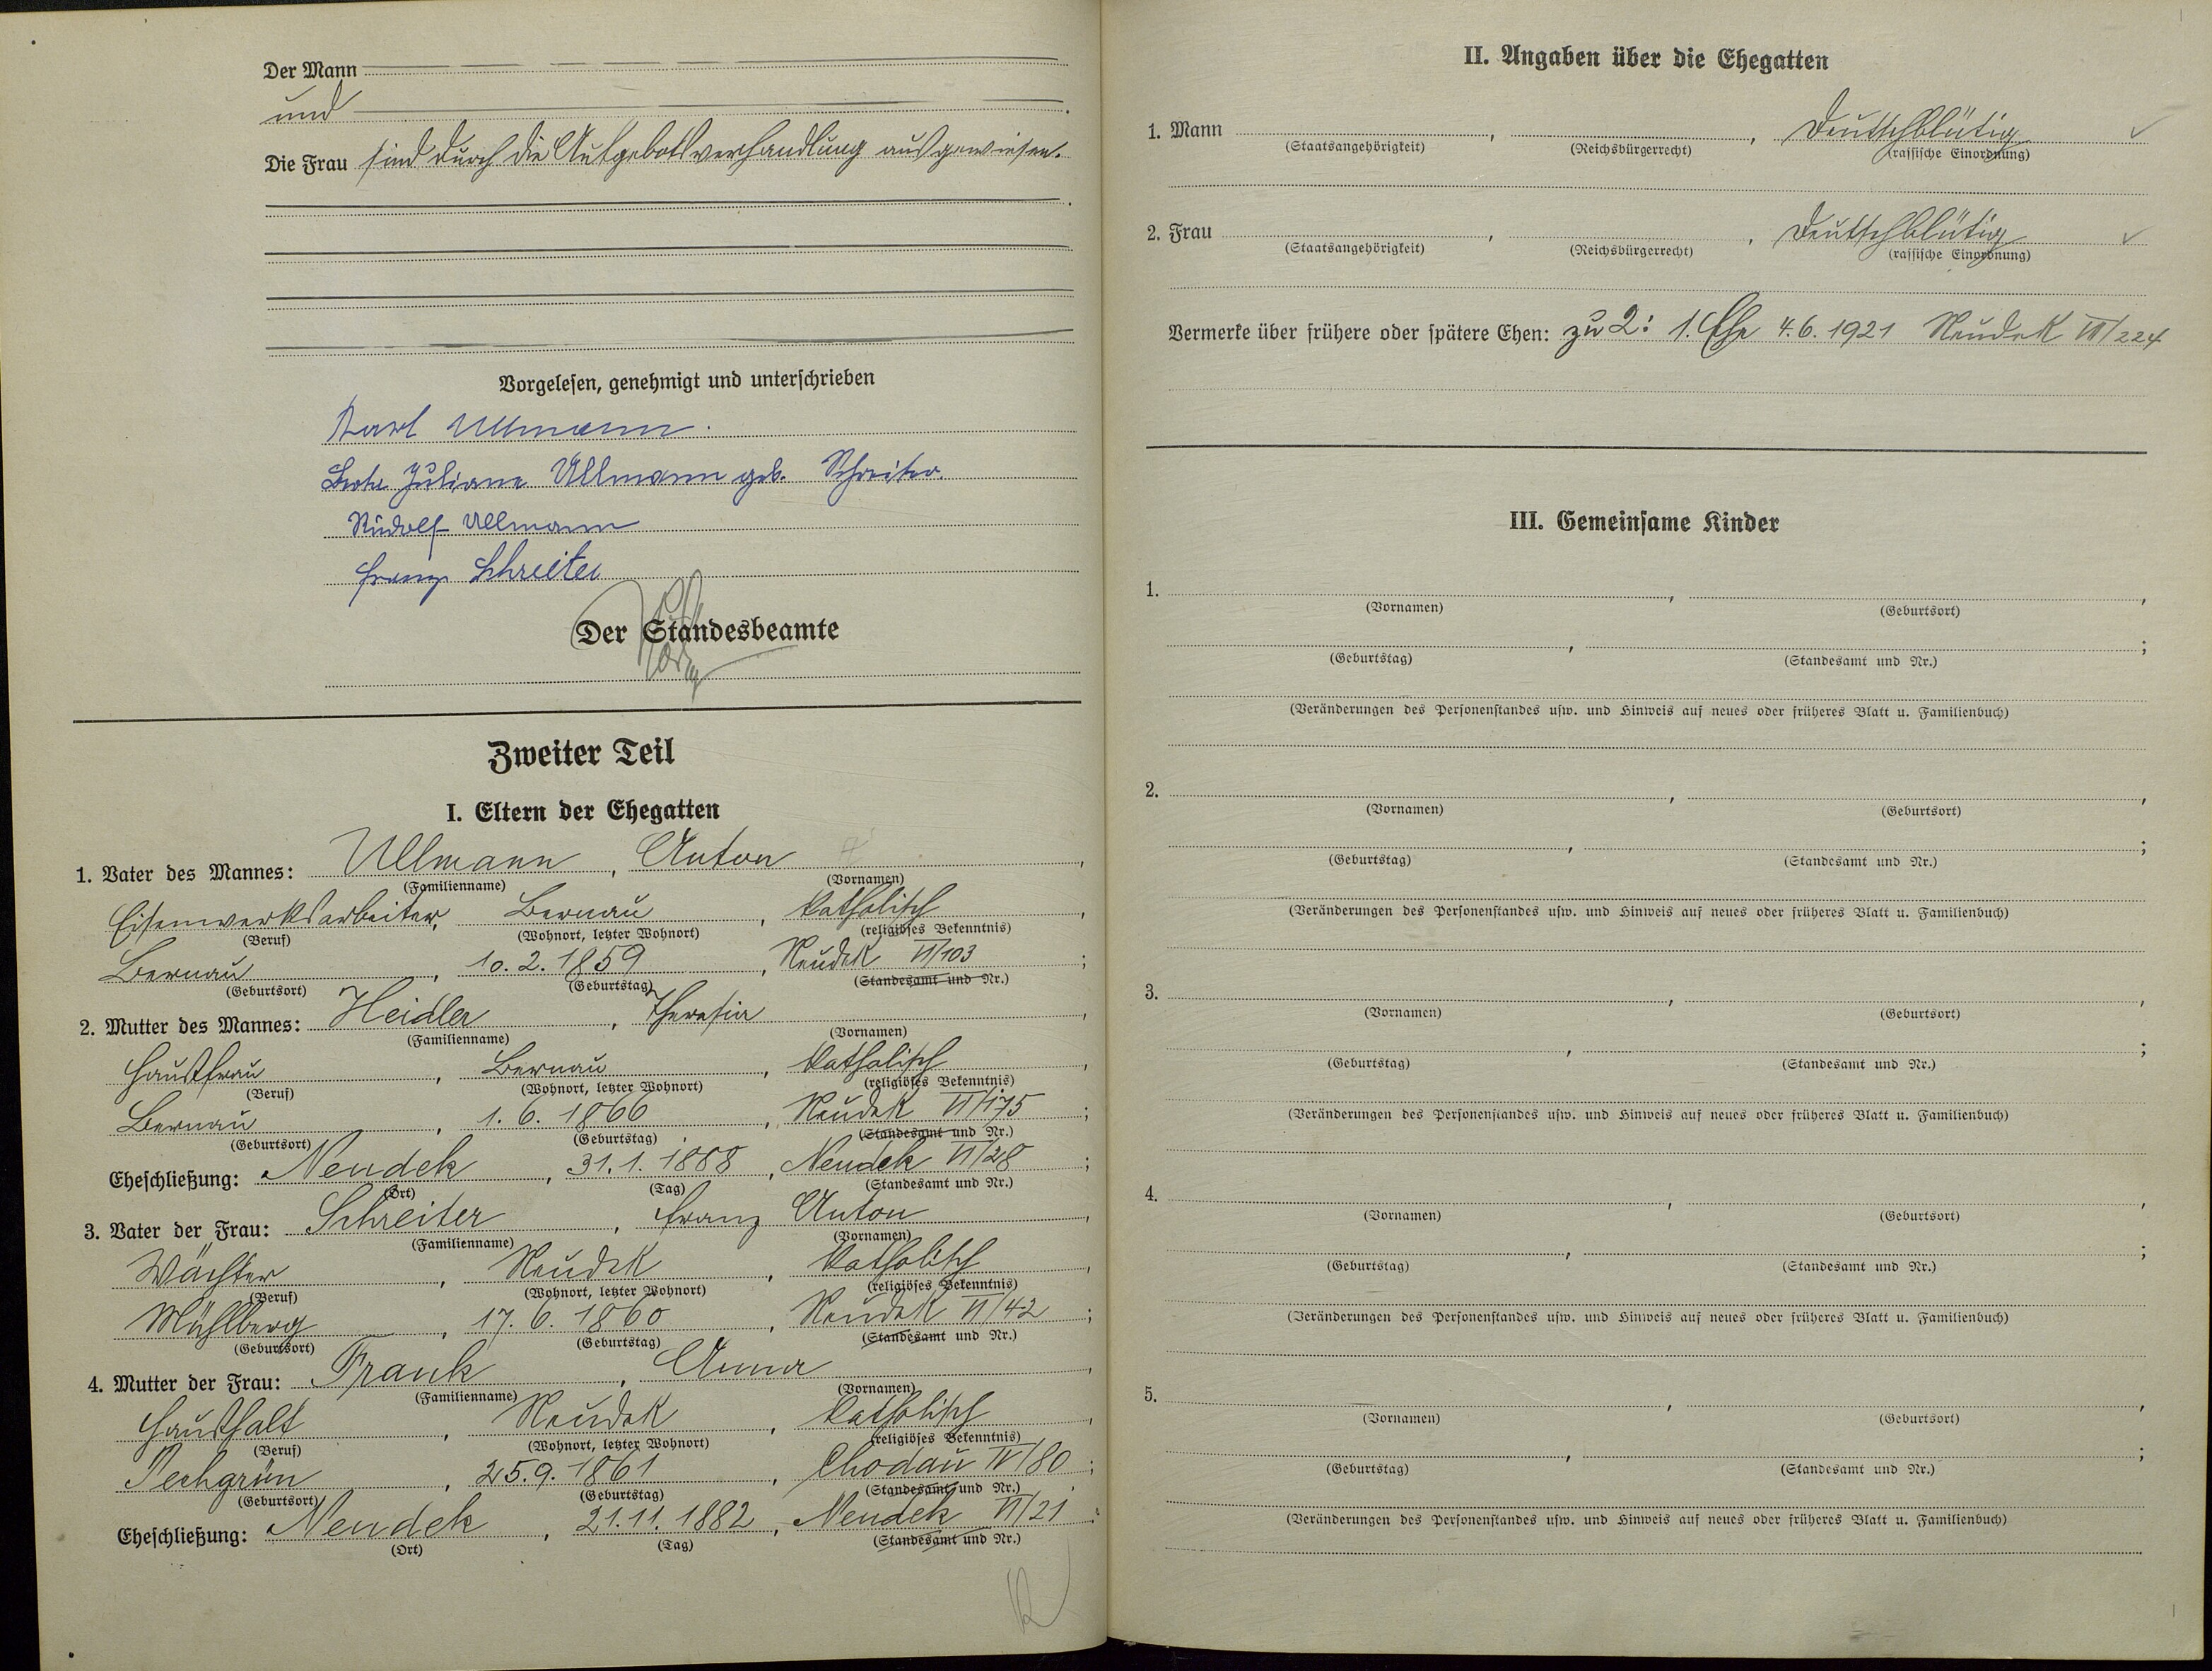 Der Mann
und
Die Frau sind durch die Aufgebotsverhandlung ausgewiesen.
Vorgelesen, genehmigt und unterschrieben
Karl Ullmann.
Juliane Ullmann geb. Schreiter.
Rudolf Ullmann
Franz Schreiter
Der Standesbeamte
Zweiter Teil
I. Eltern der Ehegatten
1. Vater des Mannes: Ullmann, Anton,
(Familienname) (Vornamen)
Eisenwerksarbeiter, Bernau, katholisch,
(Beruf) (Wohnort, letzter Wohnort) (religiöses Bekenntnis)
Bernau, 10. 2. 1859, Neudek VI/103;
(Geburtsort) (Geburtstag) (Standesamt und Nr.)
2. Mutter des Mannes: Heidler, Theresia,
(Familienname) (Vornamen)
Hausfrau, Bernau, katholisch,
(Beruf) (Wohnort, letzter Wohnort) (religiöses Bekenntnis)
Bernau, 1. 6. 1866, Neudek VI/175;
(Geburtsort) (Geburtstag) (Standesamt und Nr.)
Eheschließung: Neudek, 31. 1. 1888, Neudek VI/28;
(Ort) (Tag) (Standesamt und Nr.)
3. Vater der Frau: Schreiter, Franz Anton,
(Familienname) (Vornamen)
Wächter, Neudek, katholisch,
(Beruf) (Wohnort, letzter Wohnort) (religiöses Bekenntnis)
Mühlberg, 17. 6. 1860, Neudek VI/42;
(Geburtsort) (Geburtstag) (Standesamt und Nr.)
4. Mutter der Frau: Frank, Anna,
(Familienname) (Vornamen)
Haushalt, Neudek, katholisch,
(Beruf) (Wohnort, letzter Wohnort) (religiöses Bekenntnis)
Pechgrün, 25. 9. 1861, Chodau IV/80;
(Geburtsort) (Geburtstag) (Standesamt und Nr.)
Eheschließung: Neudek, 21. 11. 1882, Neudek VI/21;
(Ort) (Tag) (Standesamt und Nr.)
II. Angaben über die Ehegatten
1. Mann , , Deutschblütig
(Staatsangehörigkeit) (Reichsbürgerrecht) (rassische Einordnung)
2. Frau , , Deutschblütig
(Staatsangehörigkeit) (Reichsbürgerrecht) (rassische Einordnung)
Vermerke über frühere oder spätere Ehen: zu 2: 1. Ehe 4. 6. 1921 Neudek VII/224
III. Gemeinsame Kinder
1. , ,
(Vornamen) (Geburtsort)
, ;
(Geburtstag) (Standesamt und Nr.)
(Veränderungen des Personenstandes usw. und Hinweis auf neues oder früheres Blatt u. Familienbuch)
2. , ,
(Vornamen) (Geburtsort)
, ;
(Geburtstag) (Standesamt und Nr.)
(Veränderungen des Personenstandes usw. und Hinweis auf neues oder früheres Blatt u. Familienbuch)
3. , ,
(Vornamen) (Geburtsort)
, ;
(Geburtstag) (Standesamt und Nr.)
(Veränderungen des Personenstandes usw. und Hinweis auf neues oder früheres Blatt u. Familienbuch)
4. , ,
(Vornamen) (Geburtsort)
, ;
(Geburtstag) (Standesamt und Nr.)
(Veränderungen des Personenstandes usw. und Hinweis auf neues oder früheres Blatt u. Familienbuch)
5. , ,
(Vornamen) (Geburtsort)
, ;
(Geburtstag) (Standesamt und Nr.)
(Veränderungen des Personenstandes usw. und Hinweis auf neues oder früheres Blatt u. Familienbuch)